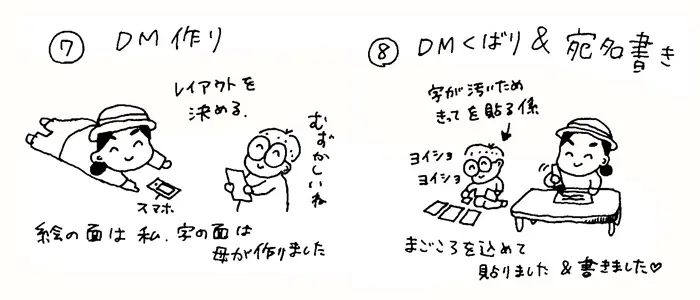 ⑦ DM作り
レイアウトを
決める.
むずかしいね
スマホ
絵の面は 私、字の面は
母が作りました
⑧ DMくばり & 宛名書き
字が汚いため
きってを貼る係
ヨイショ
ヨイショ
まごころを込めて
貼りました & 書きました♡